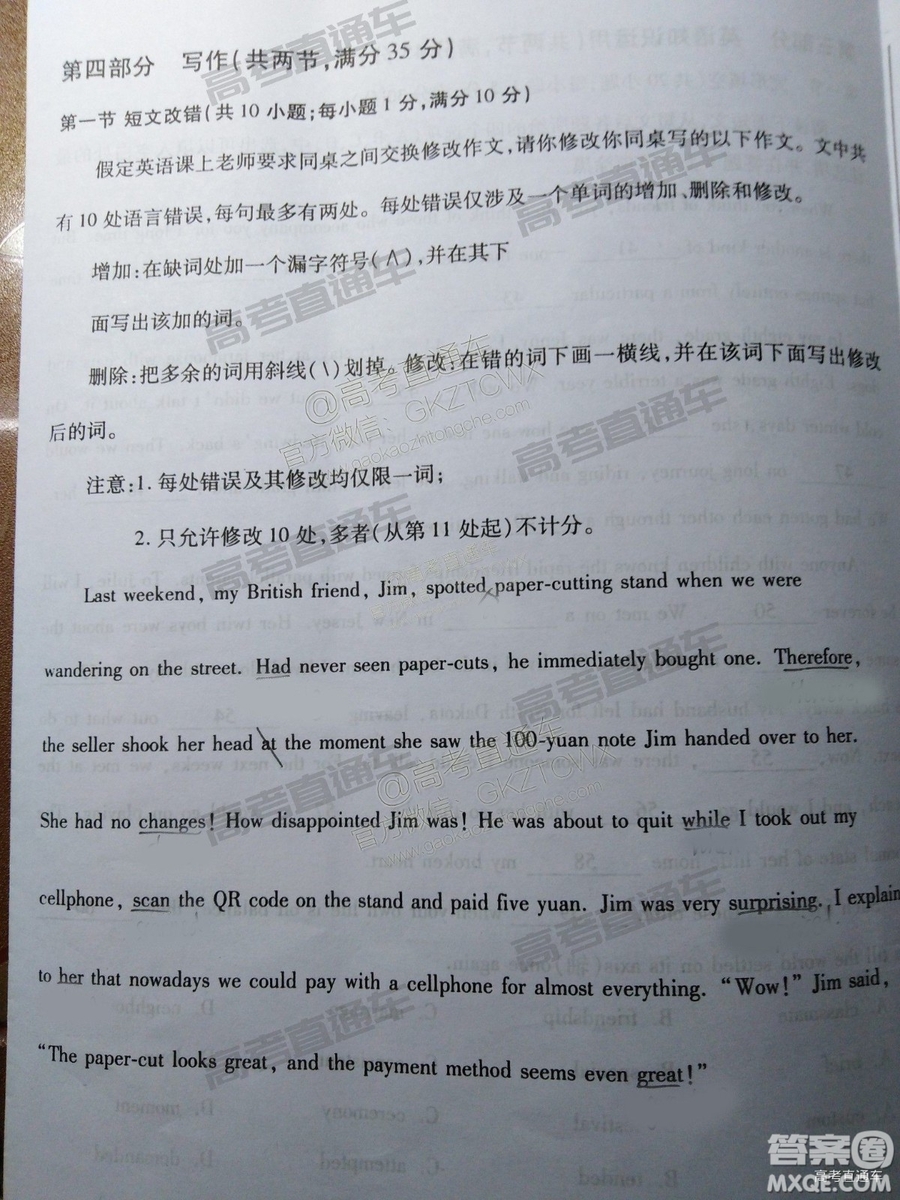 第四部分 写作(共两节,满分35分)
第一节 短文改错(共10小题;每小题1分,满分10分)
假定英语课上老师要求同桌之间交换修改作文,请你修改你同桌写的以下作文。文中共
有10处语言错误,每句最多有两处。每处错误仅涉及一个单词的增加、删除和修改。
增加:在缺词处加一个漏字符号(∧),并在其下
面写出该加的词。
删除:把多余的词用斜线(\)划掉。修改:在错的词下画一横线,并在该词下面写出修改
后的词。
注意:1. 每处错误及其修改均仅限一词;
2. 只允许修改10处,多者(从第11处起)不计分。
Last weekend, my British friend, Jim, spotted paper-cutting stand when we were
wandering on the street. Had never seen paper-cuts, he immediately bought one. Therefore,
the seller shook her head at the moment she saw the 100-yuan note Jim handed over to her.
She had no changes! How disappointed Jim was! He was about to quit while I took out my
cellphone, scan the QR code on the stand and paid five yuan. Jim was very surprising. I explain
to her that nowadays we could pay with a cellphone for almost everything. “Wow!” Jim said,
“The paper-cut looks great, and the payment method seems even great!”
高考直通车
@高考直通车
官方微信:GKZTCWX
www.gaokaozhitongche.com
答案圈
MXQE.COM
高考直通车